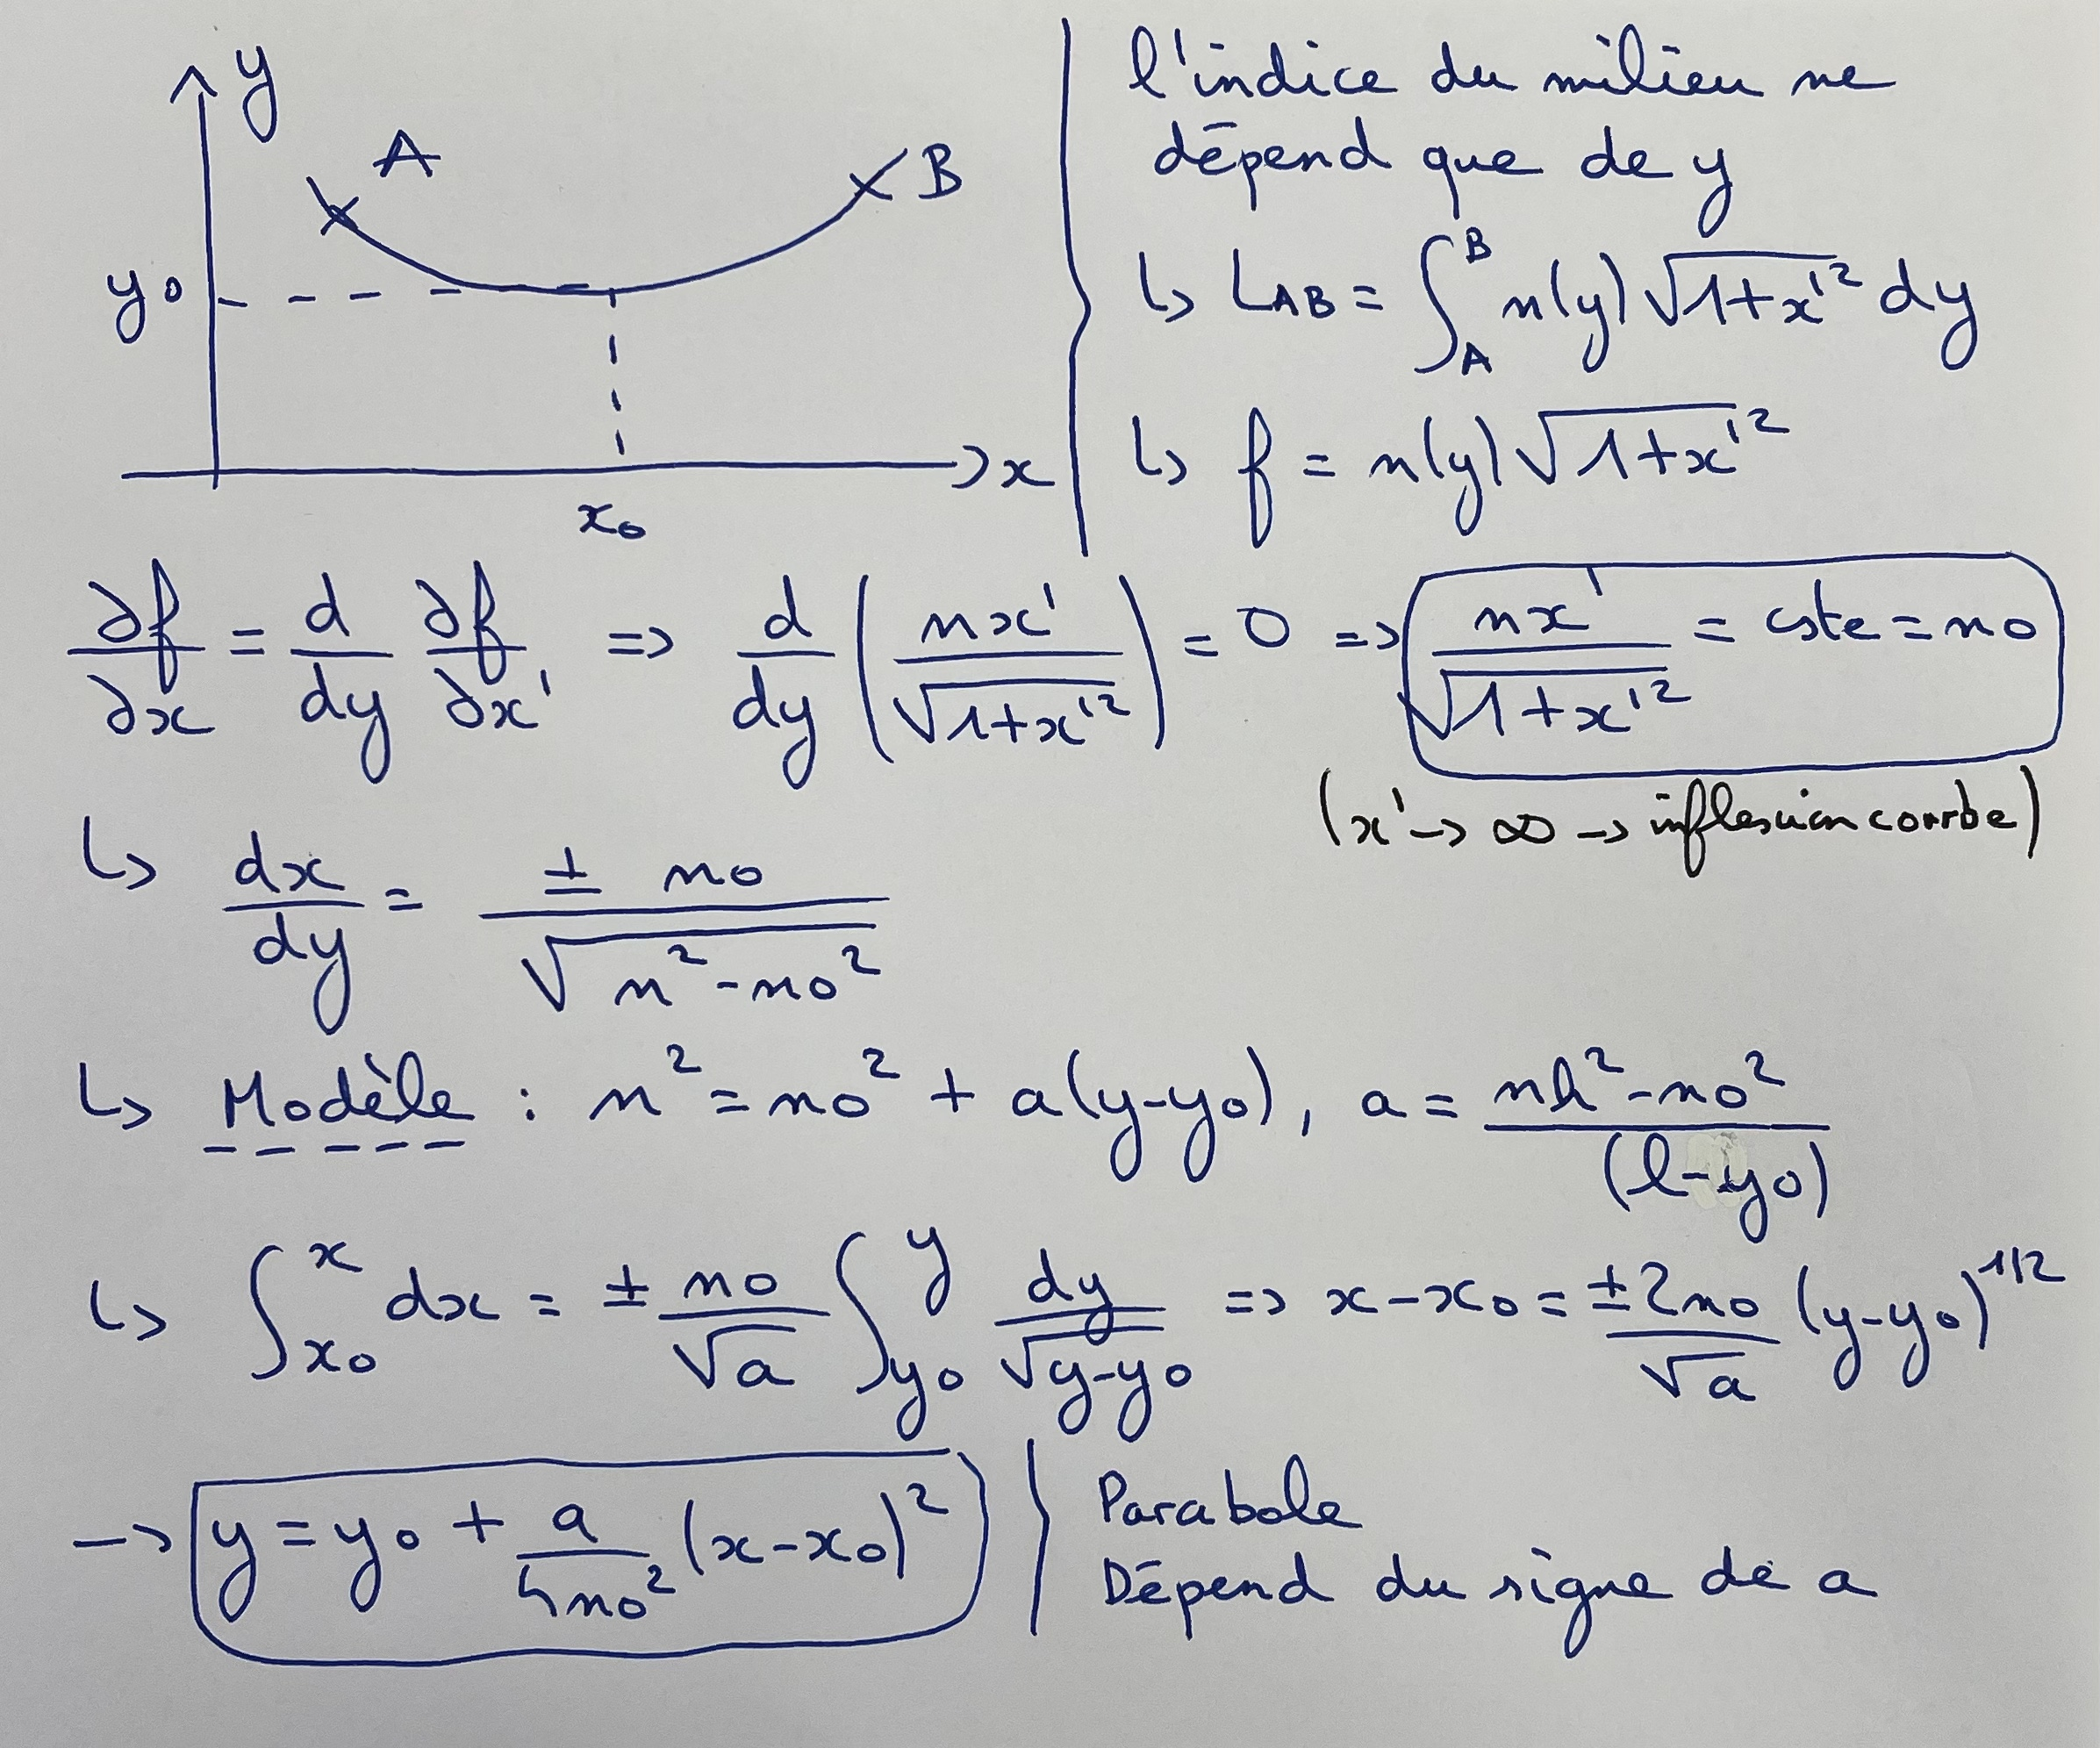 y
A
B
y0
x
x0
l'indice du milieu ne
dépend que de y
↳ LAB = ∫_A^B n(y) √(1+x'²) dy
↳ f = n(y) √(1+x'²)
∂f/∂x = d/dy ∂f/∂x' => d/dy (nx'/√(1+x'²)) = 0 => nx'/√(1+x'²) = cste = n0
(x' -> ∞ -> inflexion courbe)
↳ dx/dy = ± n0/√(n²-n0²)
↳ Modèle : n² = n0² + a(y-y0), a = (nh²-n0²)/(l-y0)
↳ ∫_x0^x dx = ± n0/√a ∫_y0^y dy/√(y-y0) => x-x0 = ±2n0/√a (y-y0)^1/2
-> y = y0 + a/4n0² (x-x0)²
Parabole
Dépend du signe de a